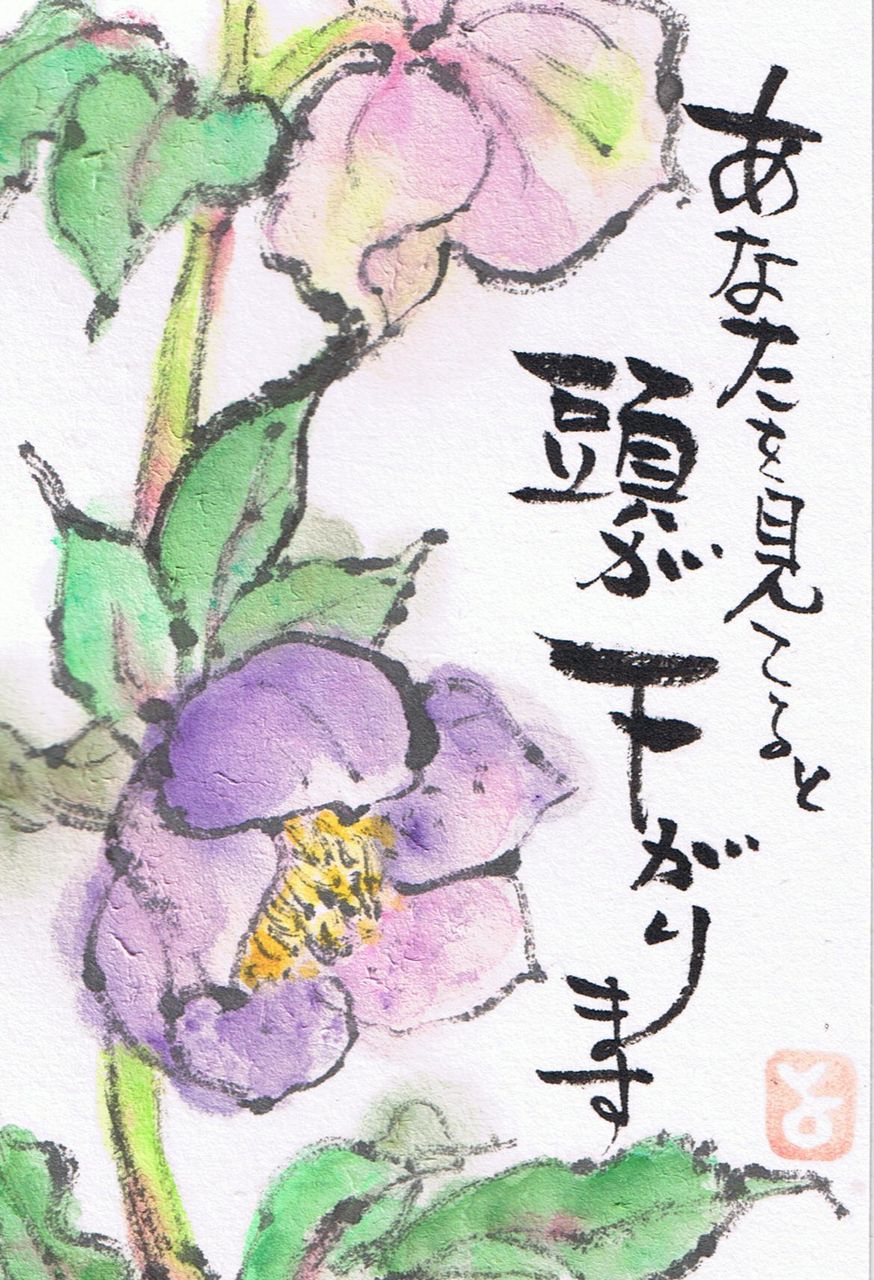 あなたを見てると
頭が下がります
と